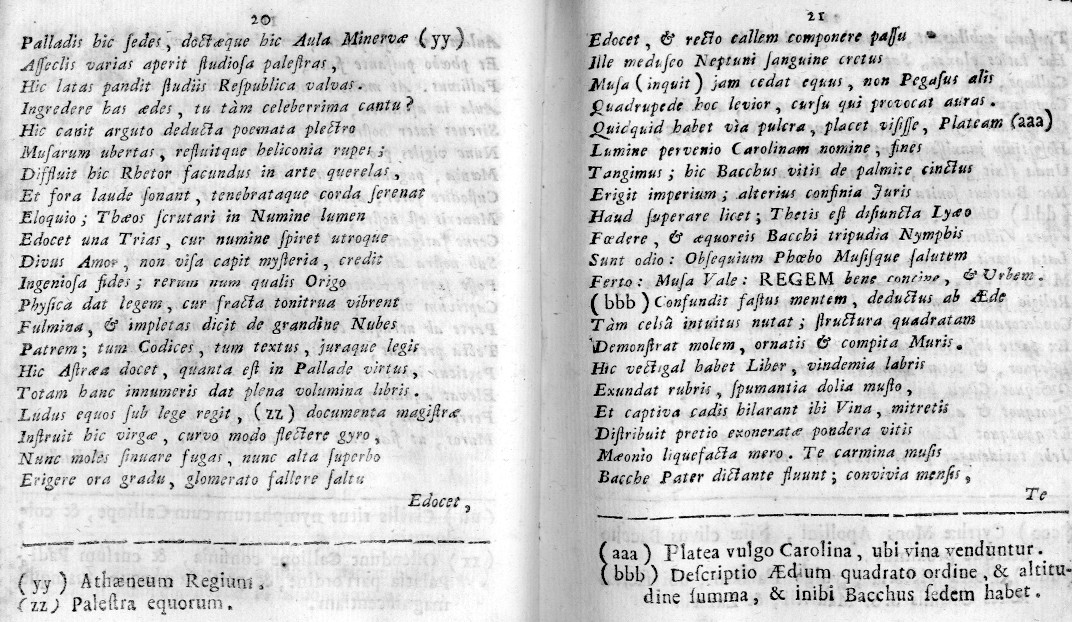 20
Palladis hic ſedes, doctæque hic Aula Minervæ (yy)
Aſſeclis varias aperit ſtudioſa paleſtras,
Hic latas pandit ſtudiis Reſpublica valvas.
Ingredere has ædes, tu tàm celeberrima cantu?
Hic canit arguto deducta poemata plectro
Muſarum ubertas, refluitque heliconia rupes;
Diffluit hic Rhetor facundus in arte querelas,
Et fora laude ſonant, tenebrataque corda ſerenat
Eloquio; Thæos ſcrutari in Numine lumen
Edocet una Trias, cur numine ſpiret utroque
Divus Amor, non viſa capit myſteria, credit
Ingenioſa fides; rerum num qualis Origo
Phyſica dat legem, cur fracta tonitrua vibrent
Fulmina, & impletas dicit de grandine Nubes
Patrem; tum Codices, tum textus, juraque legis
Hic Aſtræa docet, quanta eſt in Pallade virtus,
Totam hanc innumeris dat plena volumina libris.
Ludus equos ſub lege regit, (zz) documenta magiſtræ
Inſtruit hic virgæ, curvo modo flectere gyro,
Nunc moles ſinuare fugas, nunc alta ſuperbo
Erigere ora gradu, glomerato fallere ſaltu
Edocet,
(yy) Athæneum Regium.
(zz) Paleſtra equorum.
21
Edocet, & recto callem componere paſſu
Ille meduſeo Neptuni ſanguine cretus
Muſa (inquit) jam cedat equus, non Pegaſus alis
Quadrupede hoc levior, curſu qui provocat auras.
Quidquid habet vìa pulcra, placet viſiſſe, Plateam (aaa)
Lumine pervenio Carolinam nomine, fines
Tangimus; hic Bacchus vitis de palmite cinctus
Erigit imperium; alterius confinia Juris
Haud ſuperare licet; Thetis eſt diſiuncta Lyæo
Fœdere, & æquoreis Bacchi tripudia Nymphis
Sunt odio: Obſequium Phœbo Muſiſque ſalutem
Ferto: Muſa Vale: REGEM bene concine, & Urbem.
(bbb) Confundit faſtus mentem, deductus ab Æde
Tàm celsâ intuitus nutat; ſtructura quadratam
Demonſtrat molem, ornatis & compita Muris.
Hic vectigal habet Liber, vindemia labris
Exundat rubris, ſpumantia dolia muſto,
Et captiva cadis hilarant ibi Vina, mitretis
Diſtribuit pretio exoneratæ pondera vitis
Mæonio liquefacta mero. Te carmina muſis
Bacche Pater dictante fluunt; convivia menſis,
Te
(aaa) Platea vulgo Carolina, ubi vina venduntur.
(bbb) Deſcriptio Ædium quadrato ordine, & altitu-
dine ſumma, & inibi Bacchus ſedem habet.